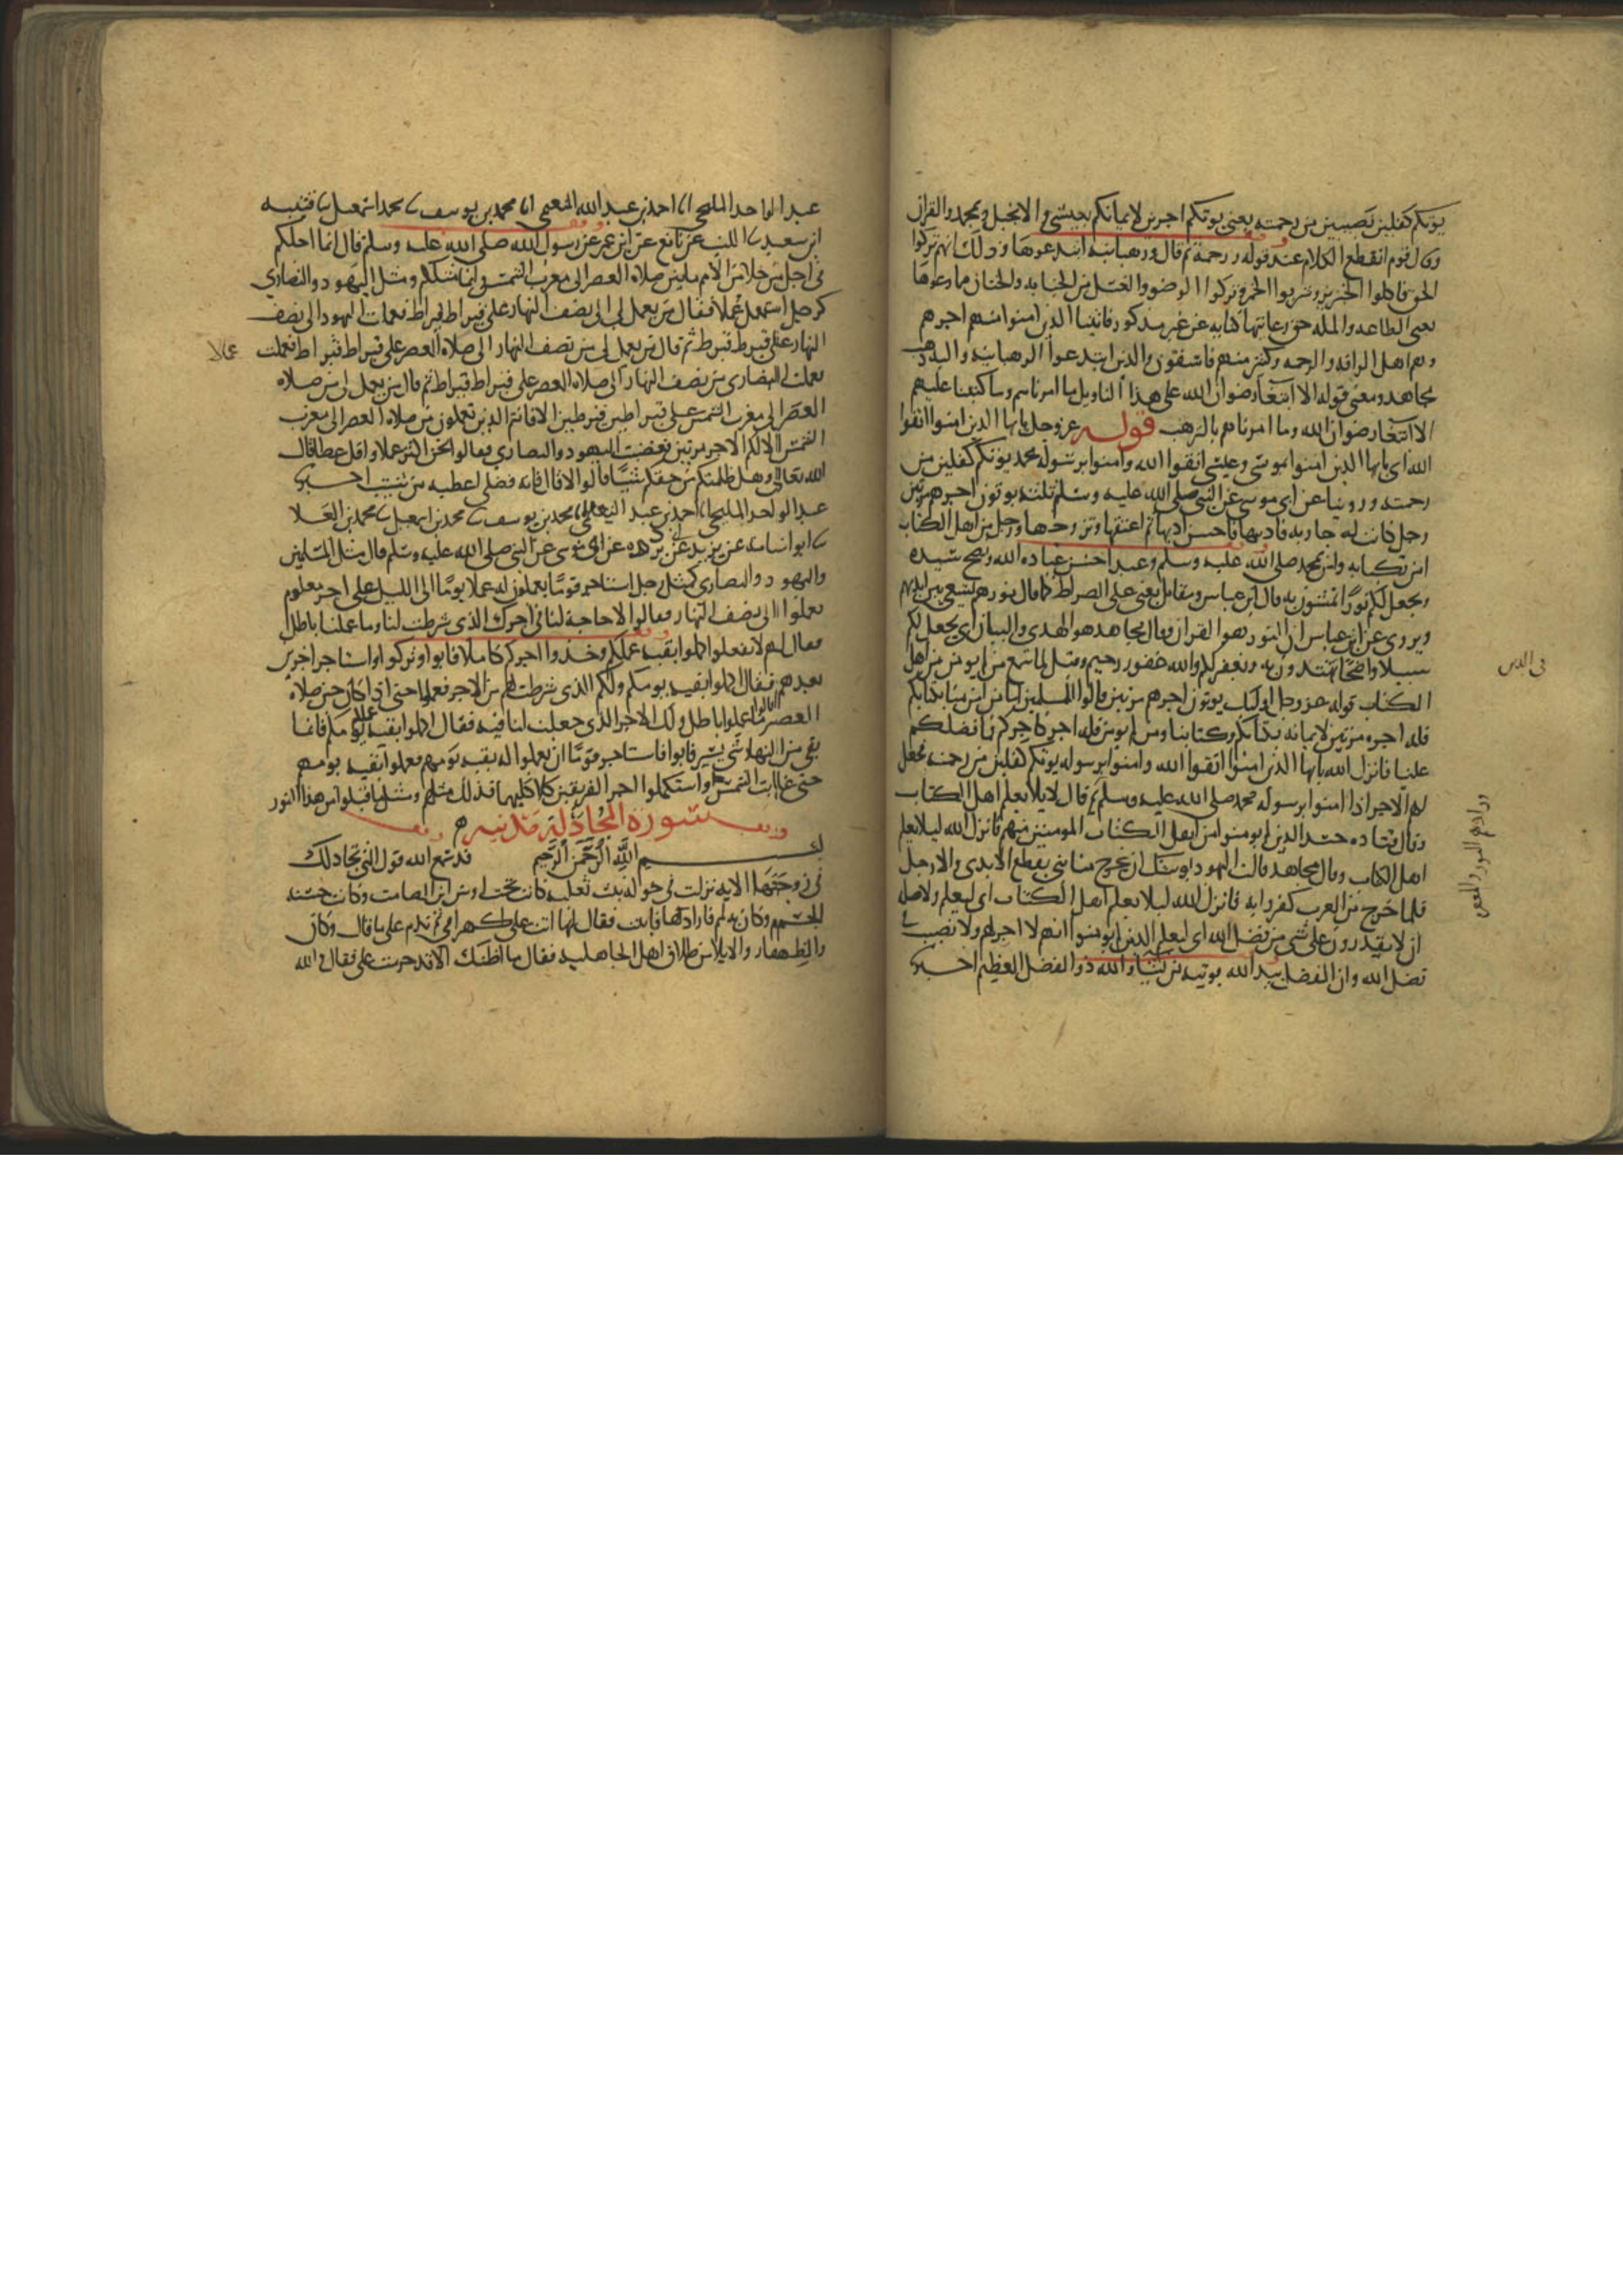 يوتكم كفلين نصيبين من رحمته يعني يوتكم اجرين لايمانكم بعيسى والانجيل وبمحمد والقران
وقال قوم انقطع الكلام عند قوله ورحمة ثم قال ورهبانية ابتدعوها وذلك انهم تركوا
الحق فاكلوا الخنزير وشربوا الخمر وتركوا الوضوء والغسل من الجنابة والختان فما رعوها
يعني الطاعة والملة حق رعايتها كناية عن غير مذكور فاتينا الذين امنوا منهم اجرهم
وهم اهل الرافة والرحمة وكثير منهم فاسقون والذين ابتدعوا الرهبانية واليه ذهب
مجاهد ومعنى قوله الا ابتغا رضوان الله على هذا التاويل ما امرناهم وما كتبنا عليهم
الا ابتغا رضوان الله وما امرناهم بالترهب قوله عز وجل يايها الذين امنوا اتقوا
الله اي يايها الذين امنوا بموسى وعيسى اتقوا الله وامنوا برسوله محمد يوتكم كفلين من
رحمته وروينا عن ابي موسى عن النبي صلى الله عليه وسلم ثلثة يوتون اجرهم مرتين
رجل كانت له جارية فادبها فاحسن ادبها ثم اعتقها وتزوجها ورجل من اهل الكتاب
امن بكتابه وامن بمحمد صلى الله عليه وسلم وعبد احسن عبادة الله ونصح سيده
ويجعل لكم نورا تمشون به قال ابن عباس ومقاتل يعني على الصراط كما قال نورهم يسعى بين ايديهم
ويروى عن ابن عباس ان النور هو القران وقال مجاهد هو الهدى والبيان اي يجعل لكم
سبيلا واضحا تهتدون به ويغفر لكم والله غفور رحيم وقيل لما سمع من لم يومن من اهل
الكتاب قوله عز وجل اوليك يوتون اجرهم مرتين قالوا للمسلمين اما من امن منا بكتابكم
فله اجره مرتين لايمانه بكتابكم وكتابنا ومن لم يومن فله اجر كاجركم فما فضلكم
علينا فانزل الله يايها الذين امنوا اتقوا الله وامنوا برسوله يوتكم كفلين من رحمته فجعل
لهم الاجر اذا امنوا برسوله محمد صلى الله عليه وسلم ثم قال لايلا يعلم اهل الكتاب
وقال قتادة حسد الذين لم يومنوا من اهل الكتاب المومنين منهم فانزل الله ليلا يعلم
اهل الكتاب وقال مجاهد قالت اليهود يوشك ان يخرج منا نبي يقطع الايدي والارجل
فلما خرج من العرب كفروا به فانزل الله ليلا يعلم اهل الكتاب اي ليعلم ولا صلة
ان لا يقدرون على شي من فضل الله اي ليعلم الذين لم يومنوا انهم لا اجر لهم ولا نصيب في
فضل الله وان الفضل بيد الله يوتيه من يشا والله ذو الفضل العظيم اخبرنا
عبد الواحد المليحي انا احمد بن عبد الله النعيمي انا محمد بن يوسف نا محمد بن اسمعيل نا قتيبة
ابن سعيد نا الليث عن نافع عن ابن عمر عن رسول الله صلى الله عليه وسلم قال انما اجلكم
في اجل من خلا من الامم ما بين صلاة العصر الى مغرب الشمس وانما مثلكم ومثل اليهود والنصارى
كرجل استعمل عمالا فقال من يعمل لي الى نصف النهار على قيراط قيراط فعملت اليهود الى نصف
النهار على قيراط قيراط ثم قال من يعمل لي من نصف النهار الى صلاة العصر على قيراط قيراط فعملت
فعملت النصارى من نصف النهار الى صلاة العصر على قيراط قيراط ثم قال من يعمل لي من صلاة
العصر الى مغرب الشمس على قيراطين قيراطين الا فانتم الذين تعملون من صلاة العصر الى مغرب
الشمس الا لكم الاجر مرتين فغضبت اليهود والنصارى فقالوا نحن اكثر عملا واقل عطا قال
الله تعالى وهل ظلمتكم من حقكم شيئا قالوا لا قال فانه فضلي اعطيه من شئت اخبرنا
عبد الواحد المليحي انا احمد بن عبد الله النعيمي انا محمد بن يوسف نا محمد بن اسمعيل نا محمد بن العلا
نا ابو اسامة عن بريد عن ابي بردة عن ابي موسى عن النبي صلى الله عليه وسلم قال مثل المسلمين
واليهود والنصارى كمثل رجل استاجر قوما يعملون له عملا يوما الى الليل على اجر معلوم
فعملوا الى نصف النهار فقالوا لا حاجة لنا في اجرك الذي شرطت لنا وما عملنا باطل
فقال لهم لا تفعلوا اكملوا بقية عملكم وخذوا اجركم كاملا فابوا وتركوا واستاجر اجرين
بعدهم فقال اكملوا بقية يومكم ولكم الذي شرطت لهم من الاجر فعملوا حتى اذا كان حين صلاة
العصر قالوا ما عملنا باطل ولك الاجر الذي جعلت لنا فيه فقال اكملوا بقية عملكم فانما
بقي من النهار شي يسير فابوا فاستاجر قوما ان يعملوا له بقية يومهم فعملوا بقية يومهم
حتى غابت الشمس واستكملوا اجر الفريقين كلاهما فذلك مثلهم ومثل ما قبلوا من هذا النور
سورة المجادلة مدنية
بسم الله الرحمن الرحيم قد سمع الله قول التي تجادلك
في زوجها الاية نزلت في خولة بنت ثعلبة كانت تحت اوس ابن الصامت وكانت حسنة
الجسم وكان به لمم فارادها فابت فقال لها انت علي كظهر امي ثم ندم على ما قال وكان
والظهار والايلا من طلاق اهل الجاهلية فقال ما اظنك الا قد حرمت علي فقالت والله
عمالا